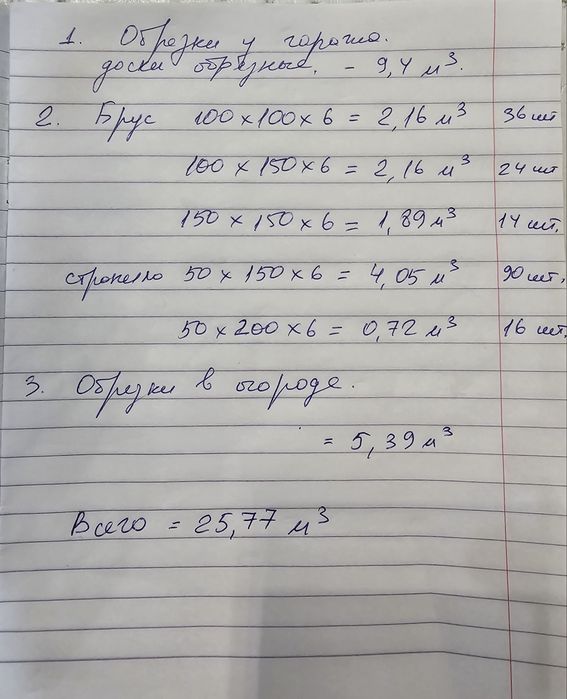 1. Обрезки у гаража.
доски обрезные. - 9,4 м³.
2. Брус 100 x 100 x 6 = 2,16 м³ 36 шт
100 x 150 x 6 = 2,16 м³ 24 шт
150 x 150 x 6 = 1,89 м³ 14 шт.
стропило 50 x 150 x 6 = 4,05 м³ 90 шт.
50 x 200 x 6 = 0,72 м³ 16 шт.
3. Обрезки в огороде.
= 5,39 м³
Всего = 25,77 м³